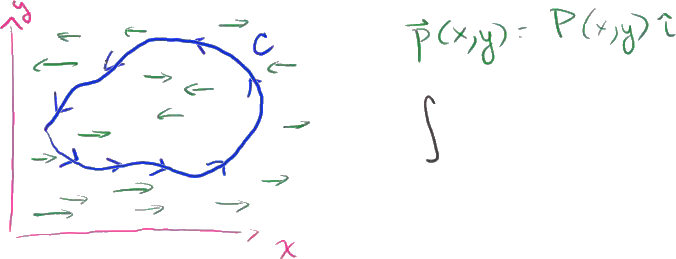 y
C
x
P⃗(x,y) = P(x,y) î
∫